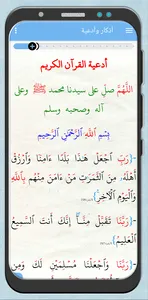 أذكار وأدعية
أدعية القرآن الكريم
اللَّهُمَّ صلِ على سيدنا محمد ﷺ وعلى
آله وصحبه وسلم
بِسْمِ ٱللَّهِ ٱلرَّحْمَٰنِ ٱلرَّحِيمِ
﴿رَبِّ ٱجْعَلْ هَٰذَا بَلَدًا ءَامِنًا وَٱرْزُقْ
أَهْلَهُۥ مِنَ ٱلثَّمَرَٰتِ مَنْ ءَامَنَ مِنْهُم بِٱللَّهِ
وَٱلْيَوْمِ ٱلْأٓخِرِ﴾
﴿رَبَّنَا تَقَبَّلْ مِنَّآ إِنَّكَ أَنتَ ٱلسَّمِيعُ
ٱلْعَلِيمُ﴾
﴿رَبَّنَا وَٱجْعَلْنَا مُسْلِمَيْنِ لَكَ وَمِن